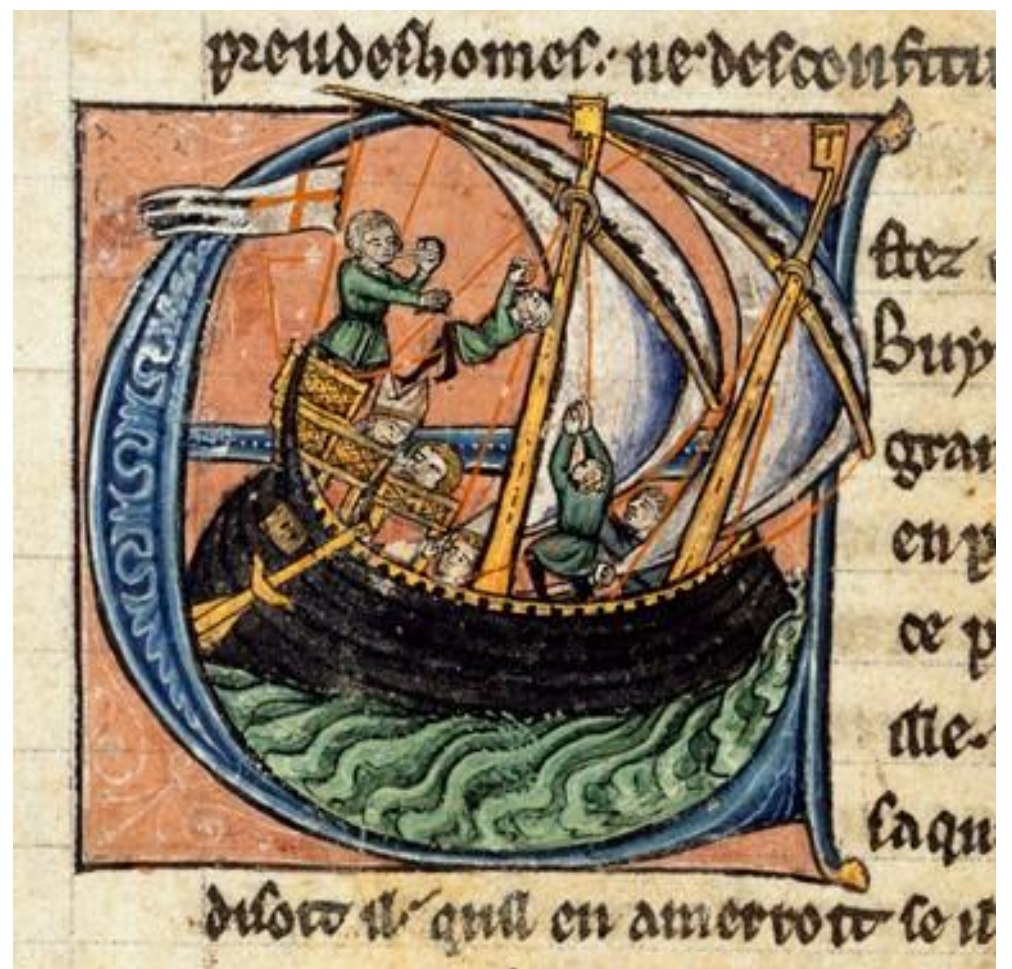 preudeshomes. ne desconfitu
stez
Buy
gran
en p
ce p
ille.
sa qu
disoit il. quil en amerroit se il